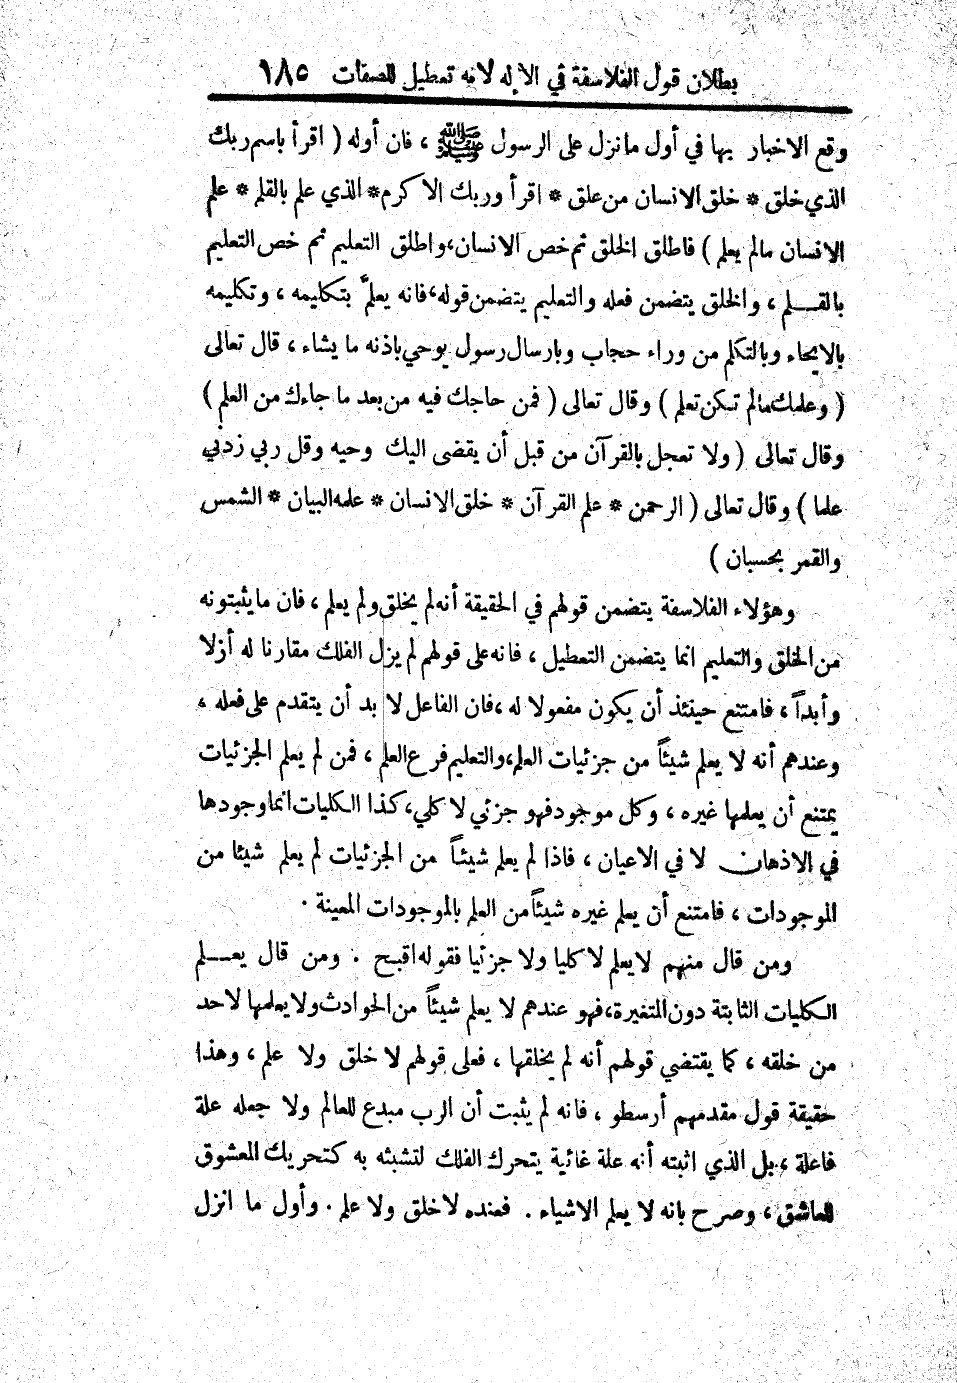 بطلان قول الفلاسفة في الإله لانه تعطيل للصفات ١٨٥
وقع الاخبار بها في أول مانزل على الرسول ﷺ ، فان أوله ( اقرأ باسم ربك
الذي خلق * خلق الانسان من علق * اقرأ وربك الاكرم * الذي علم بالقلم * علم
الانسان مالم يعلم ) فاطلق الخلق ثم خص الانسان، واطلق التعليم ثم خص التعليم
بالقـــلم ، والخلق يتضمن فعله والتعليم يتضمن قوله، فانه يعلمّ بتكليمه ، وتكليمه
بالايحاء وبالتكلم من وراء حجاب وبارسال رسول يوحي باذنه ما يشاء ، قال تعالى
( وعلمك مالم تكن تعلم ) وقال تعالى ( فمن حاجك فيه من بعد ما جاءك من العلم )
وقال تعالى ( ولا تعجل بالقرآن من قبل أن يقضى اليك وحيه وقل ربي زدني
علما ) وقال تعالى ( الرحمن * علم القرآن * خلق الانسان * علمه البيان * الشمس
والقمر بحسبان )
وهؤلاء الفلاسفة يتضمن قولهم في الحقيقة أنه لم يخلق ولم يعلم ، فان مايثبتونه
من الخلق والتعليم انما يتضمن التعطيل ، فانه على قولهم لم يزل الفلك مقارنا له أزلا
وأبداً ، فامتنع حينئذ أن يكون مفعولا له ، فان الفاعل لا بد أن يتقدم على فعله ،
وعندهم أنه لا يعلم شيئاً من جزئيات العلم، والتعليم فرع العلم ، فمن لم يعلم الجزئيات
يمتنع أن يعلمها غيره ، وكل موجود فهو جزئي لا كلي، كذا الكليات انما وجودها
في الاذهان لا في الاعيان ، فاذا لم يعلم شيئاً من الجزئيات لم يعلم شيئا من
الموجودات ، فامتنع أن يعلم غيره شيئاً من العلم بالموجودات المعينة .
ومن قال منهم لا يعلم لا كليا ولا جزئيا فقوله اقبح . ومن قال يعـــلم
الكليات الثابتة دون المتغيرة، فهو عندهم لا يعلم شيئاً من الحوادث ولا يعلمها لاحد
من خلقه ، كما يقتضي قولهم أنه لم يخلقها ، فعلى قولهم لا خلق ولا علم ، وهذا
حقيقة قول مقدمهم أرسطو ، فانه لم يثبت أن الرب مبدع للعالم ولا جعله علة
فاعلة ، بل الذي اثبته أنه علة غائية يتحرك الفلك لتشبثه به كتحريك المعشوق
للعاشق ، وصرح بانه لا يعلم الاشياء . فعنده لا خلق ولا علم . وأول ما انزل